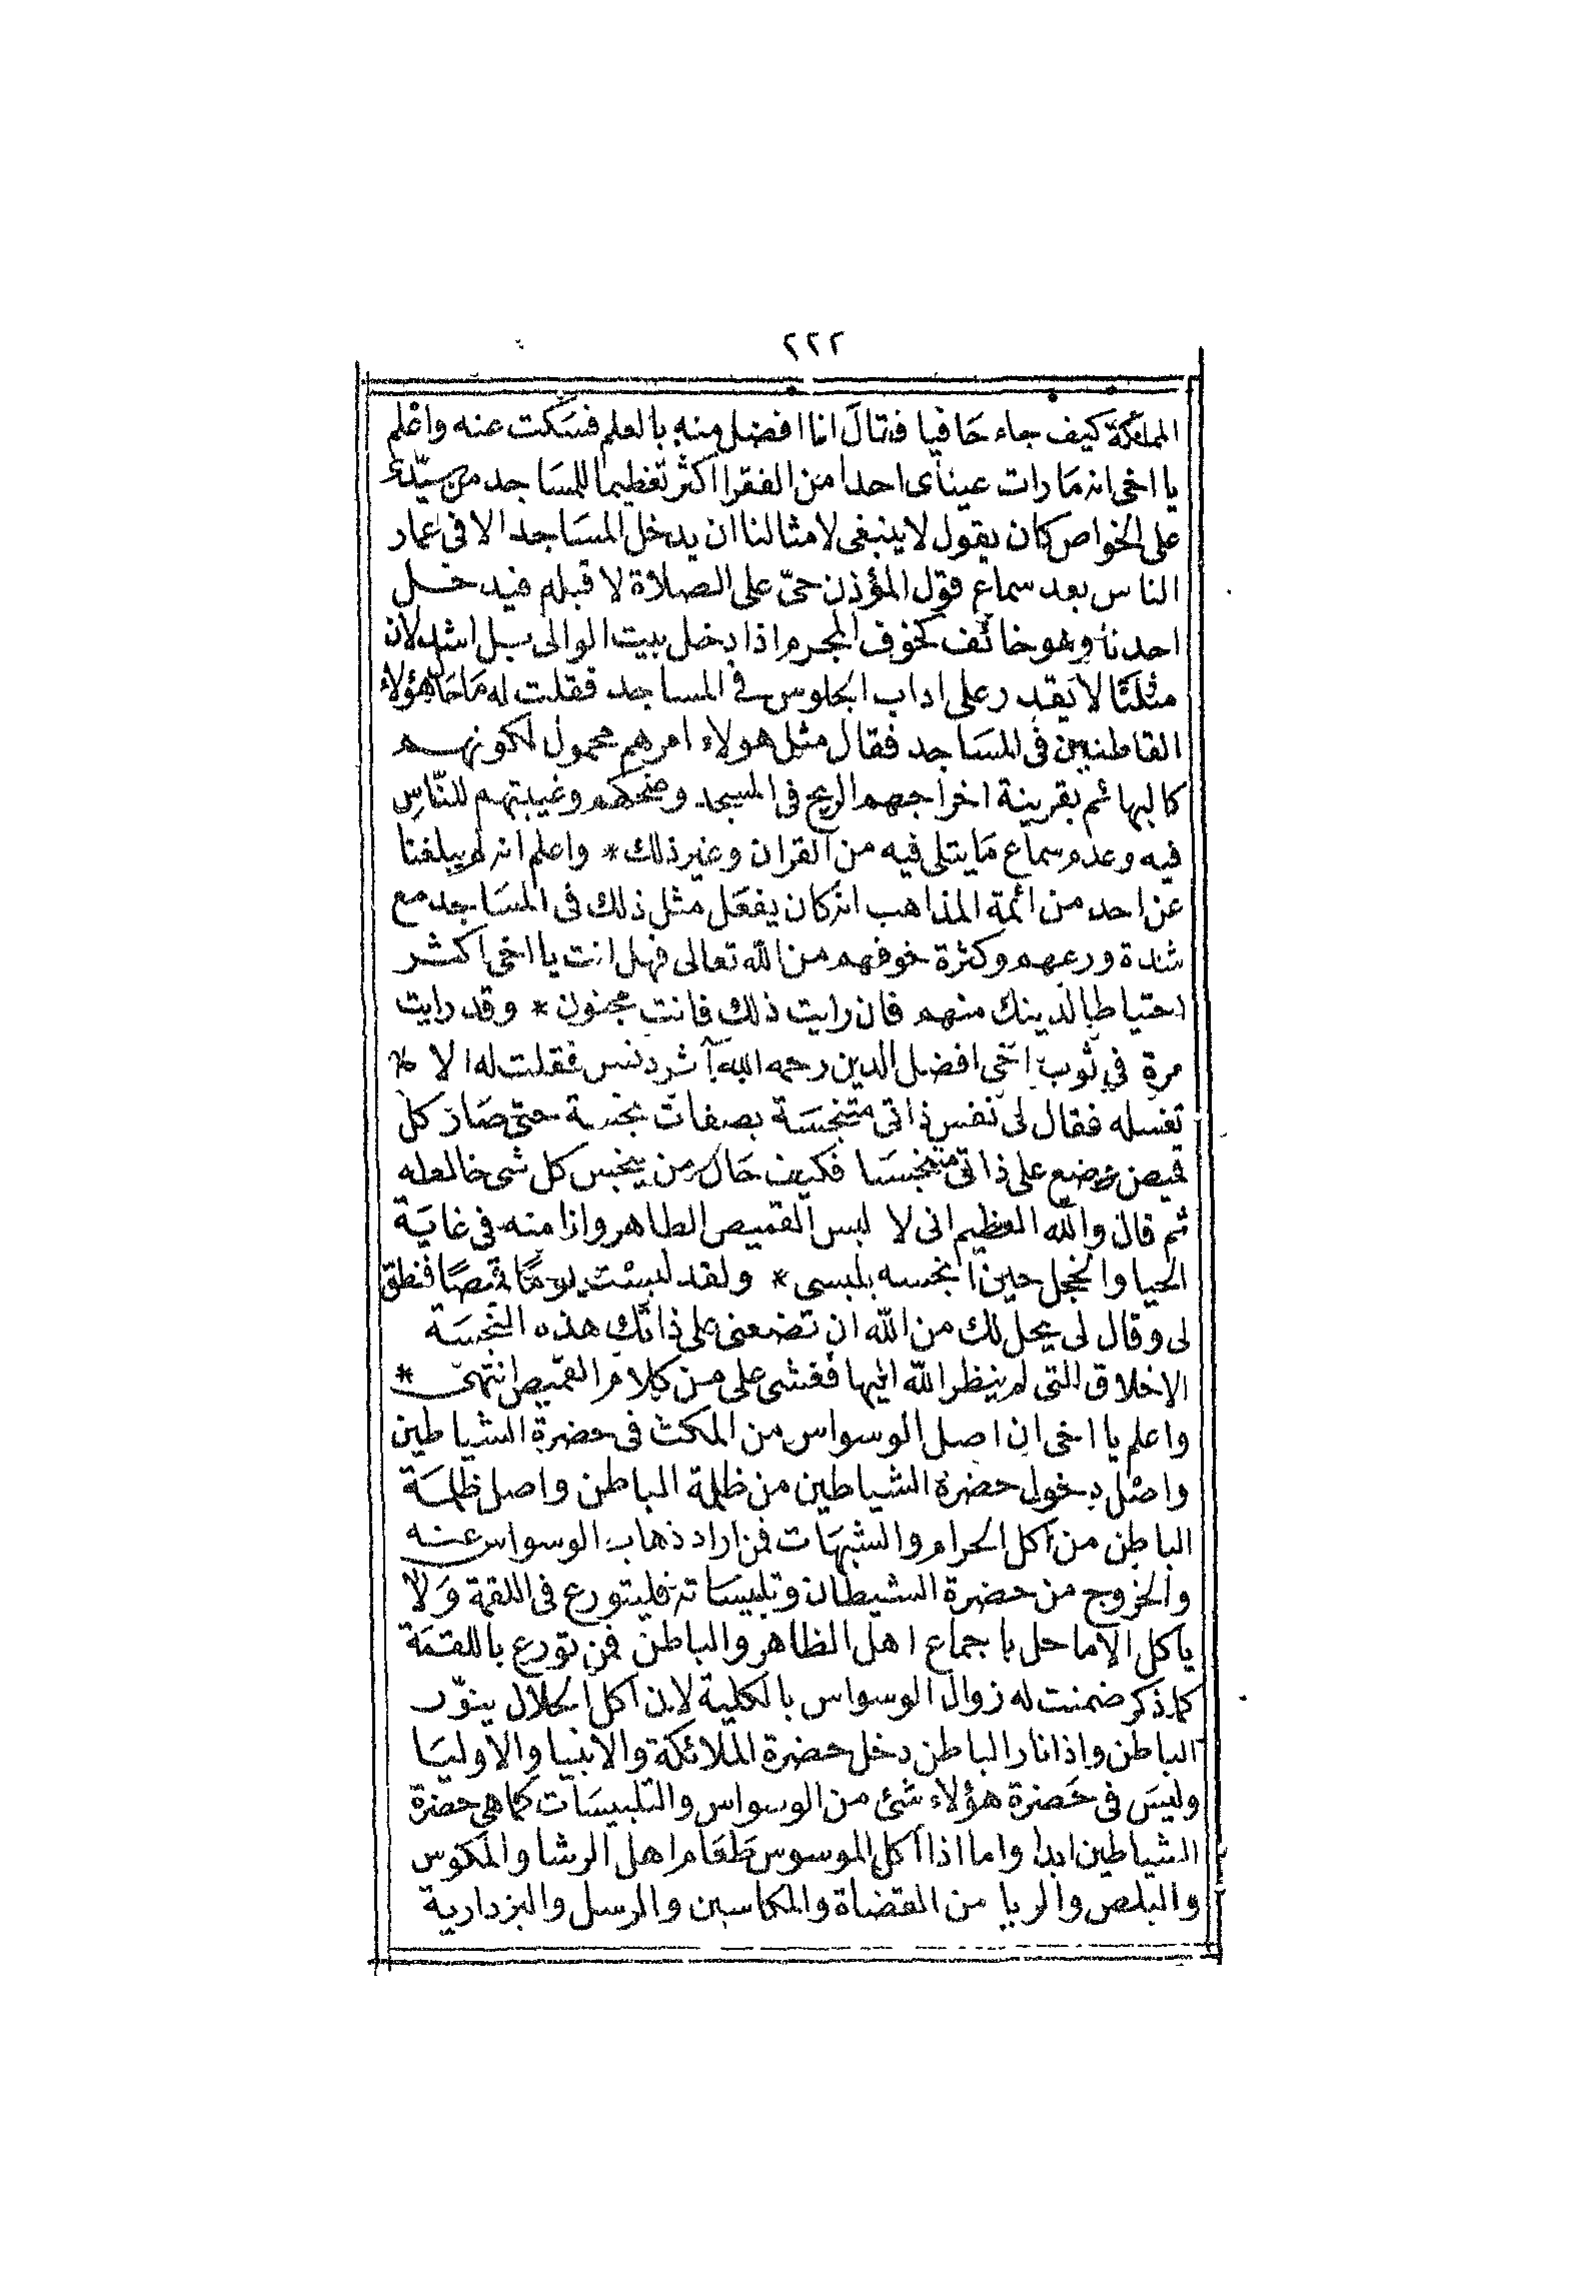 ٢٢٢
المملكة كيف جاء حَافيا فقالَ انا افضل منه بالعلم فسَكت عنه واعْلم
يا اخى انه مَا رات عيناى احدا من الفقرا اكثر تعظيما للمسَاجد من سيّدى
على الخواص كان يقول لا ينبغى لامثالنا ان يدخل المسَاجد الا فى غمار
الناس بعد سماع قول المؤذن حىّ على الصلاة لا قبله فيدخل
احدنا وهو خائف كخوف المجرم اذا دخل بيت الوالى بل اشد لان
مثلنَا لا يَقدر على اداب الجلوس فى المساجد فقلت له مَا حَال هؤلاء
القاطنين فى المسَاجد فقال مثل هولاء امرهم محمول لكونهم
كالبهائم بقرينة اخراجهم الريح فى المسجد وضحكهم وغيبتهم للنّاسِ
فيه وعدم سماع مَا يتلى فيه من القران وغير ذلك * واعلم انه لم يبلغنا
عن احد من ائمة المذاهب انه كان يفعَل مثل ذلك فى المسَاجد مع
شدة ورعهم وكثرة خوفهم من الله تعالى فهل انت يا اخى اكثر
احتياطا لدينك منهم فان رايت ذلك فانت مجنون * وقد رايت
مرة فى ثوب اخى افضل الدين رحمه الله آثر دنس فقلت له الا *
تغسله فقال لى نفس ذاتى متنجسَة بصفات نجسة حتى صَار كل
قميص وضع على ذاتى متنجسَا فكيف حَال من ينجس كل شى خالطه
ثم قال والله العظيم انى لا لبس القميص الطاهر وانا منه فى غايَة
الحيا والخجل حين انجسه بلبسى * ولقد لبسْت يومًا قميصًا فنطق
لى وقال لى يحل لك من الله ان تضعنى على ذاتك هذه النجسَة
الاخلاق التى لم ينظر الله اليها فغشى على من كلام القميص انتهى *
واعلم يا اخى ان اصل الوسواس من المكث فى حضرة الشياطين
واصْل دخول حضرة الشياطين من ظلمة الباطن واصل ظلمَة
الباطن من اكل الحرام والشبهَات فمن اراد ذهاب الوسواس عنه
والخروج من حضرة الشيطان وتلبيسَاته فليتورع فى اللقمة وَلا
ياكل الا ما حل باجماع اهل الظاهر والباطن فمن تورع باللقمَة
كما ذكر ضمنت له زوال الوسواس بالكلية لان اكل الحلال ينوّر
الباطن واذا نار الباطن دخل حضرة الملائكة والانبيا والاوليَا
وليسَ فى حَضرة هؤلاء شئ من الوسواس والتلبيسَات كما هى حضرة
الشياطين ابدا واما اذا اكل الموسوس طعَام اهل الرشا والمكوس
والبلص والربا من القضاة والمكاسين والرسل والبزدارية